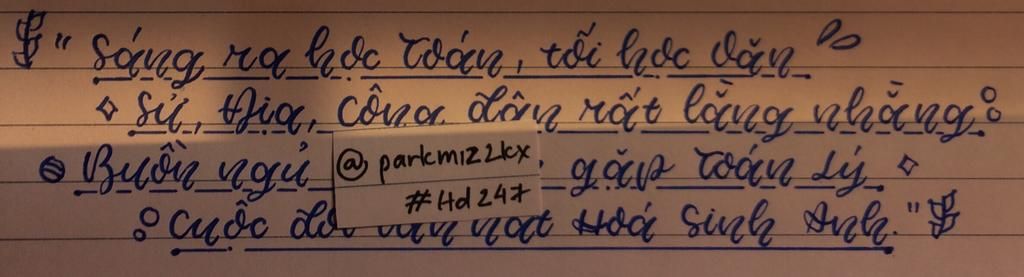 " Sáng ra học Toán, tối học Văn
Sử, Địa, Công dân rất lằng nhằng
Buồn ngủ gặp Toán Lý.
@parkmiz2kx
#Hd247
Cuộc đời Hoá Sinh Anh."